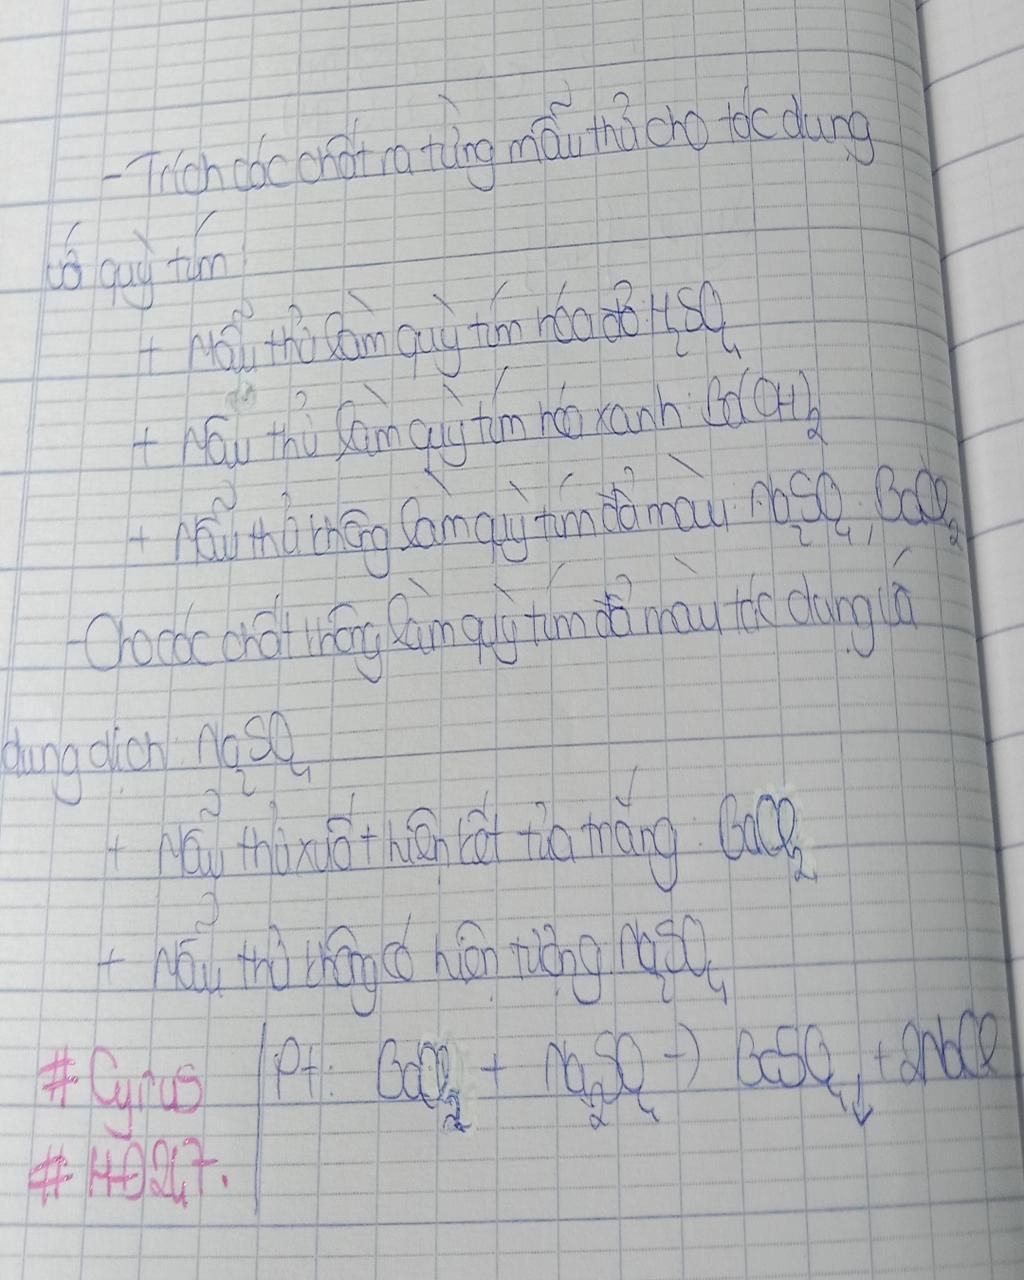 - Trích các chất ra từng mẫu thử cho tác dụng
với quỳ tím
+ Mẫu thử làm quỳ tím hóa đỏ: H₂SO₄
+ Mẫu thử làm quỳ tím hóa xanh: Ba(OH)₂
+ Mẫu thử không làm quỳ tím đổi màu: Na₂SO₄, BaCl₂
- Cho các chất không làm quỳ tím đổi màu tác dụng với
dung dịch Na₂SO₄
+ Mẫu thử xuất hiện kết tủa trắng: BaCl₂
+ Mẫu thử không có hiện tượng Na₂SO₄
Pt: BaCl₂ + Na₂SO₄ → BaSO₄↓ + 2NaCl
#Cyrus
#HĐ247.